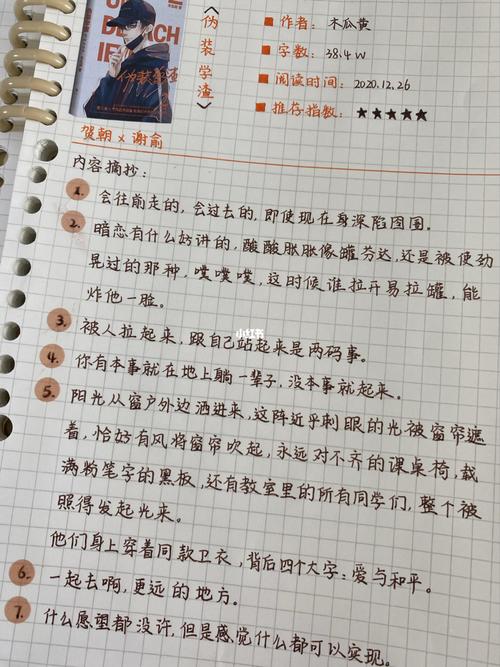 伪装学渣
《伪装学渣》
作者：木瓜黄
字数：38.4w
阅读时间：2020.12.26
推荐指数：★★★★★
贺朝x谢俞
内容摘抄：
1. 会往前走的，会过去的，即使现在身深陷囹圄。
2. 暗恋有什么好讲的，酸酸胀胀像罐芬达，还是被使劲
晃过的那种，噗噗噗，这时候谁拉开易拉罐，能
炸他一脸。
3. 被人拉起来，跟自己站起来是两码事。
4. 你有本事就在地上躺一辈子，没本事就起来。
5. 阳光从窗户外边洒进来，这阵近乎刺眼的光被窗帘遮
着，恰好有风将窗帘吹起，永远对不齐的课桌椅，载
满粉笔字的黑板，还有教室里的所有同学们，整个被
照得发起光来。
他们身上穿着同款卫衣，背后四个大字：爱与和平。
6. 一起去啊，更远的地方。
7. 什么愿望都没许，但是感觉什么都可以实现。
小红书